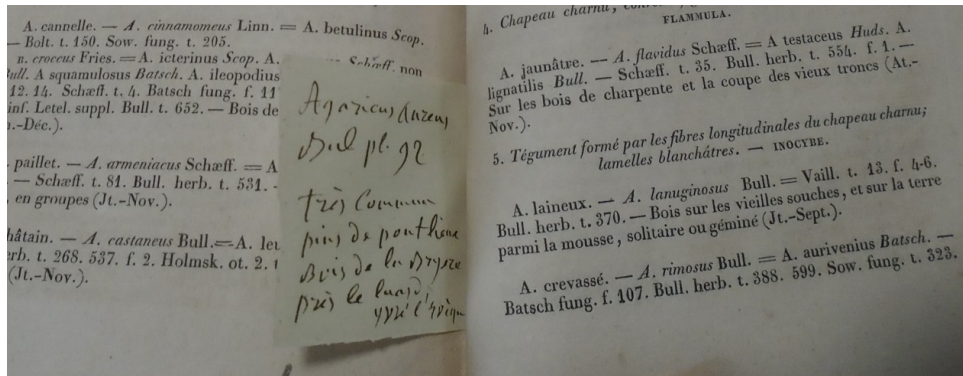 A. cannelle. — A. cinnamomeus Linn. = A. betulinus Scop.
— Bolt. t. 150. Sow. fung. t. 205.
n. croceus Fries. = A. icterinus Scop. A. Schæff. non
Bull. A squamulosus Batsch. A. ileopodius
12. 14. Schæff. t. 4. Batsch fung. f. 11
inf. Letel. suppl. Bull. t. 652. — Bois de
.-Déc.).
. paillet. — A. armeniacus Schæff. = A
— Schæff. t. 81. Bull. herb. t. 531. -
, en groupes (Jt.-Nov.).
hâtain. — A. castaneus Bull. = A. leu
rb. t. 268. 537. f. 2. Holmsk. ot. 2. t
(Jt.-Nov.).
Agaricus Aureus
Bul pl. 92
très Commun
pins de pontlieue
Bois de la
près le
yvré l'Evêque
4. Chapeau charnu,
FLAMMULA.
A. jaunâtre. — A. flavidus Schæff. = A testaceus Huds. A.
lignatilis Bull. — Schæff. t. 35. Bull. herb. t. 554. f. 1. —
Sur les bois de charpente et la coupe des vieux troncs (At.-
Nov.).
5. Tégument formé par les fibres longitudinales du chapeau charnu;
lamelles blanchâtres. — INOCYBE.
A. laineux. — A. lanuginosus Bull. = Vaill. t. 13. f. 4-6.
Bull. herb. t. 370. — Bois sur les vieilles souches, et sur la terre
parmi la mousse, solitaire ou géminé (Jt.-Sept.).
A. crevassé. — A. rimosus Bull. = A. aurivenius Batsch. —
Batsch fung. f. 107. Bull. herb. t. 388. 599. Sow. fung. t. 323.